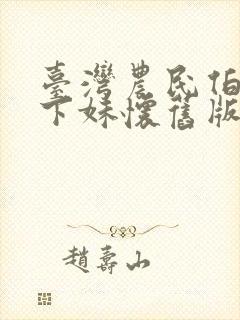 臺灣農民伯
下妹懷舊版
趙壽山